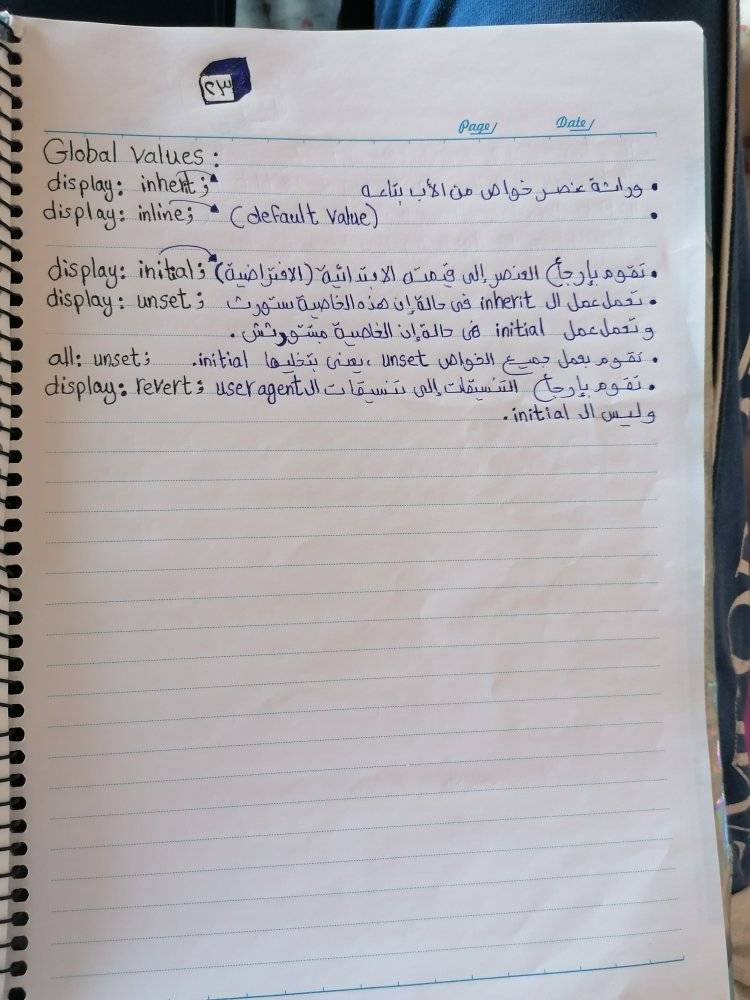 ٢٣
Page/ Date/
Global Values:
display: inherit; • وراثة عنصر خواص من الأب بتاعه
display: inline; (default value) •
display: initial; • تقوم بإرجأع العنصر إلى قيمته الابتدائية (الافتراضية)
display: unset; • تعمل عمل ال inherit فى حالة إن هذه الخاصية ستورث
وتعمل عمل initial فى حالة إن الخاصية مبتورثش.
all: unset; • تقوم بعمل جميع الخواص unset ، يعنى بتخليها initial.
display: revert; • تقوم بإرجأع التنسيقات إلى تنسيقات ال user agent
وليس ال initial.